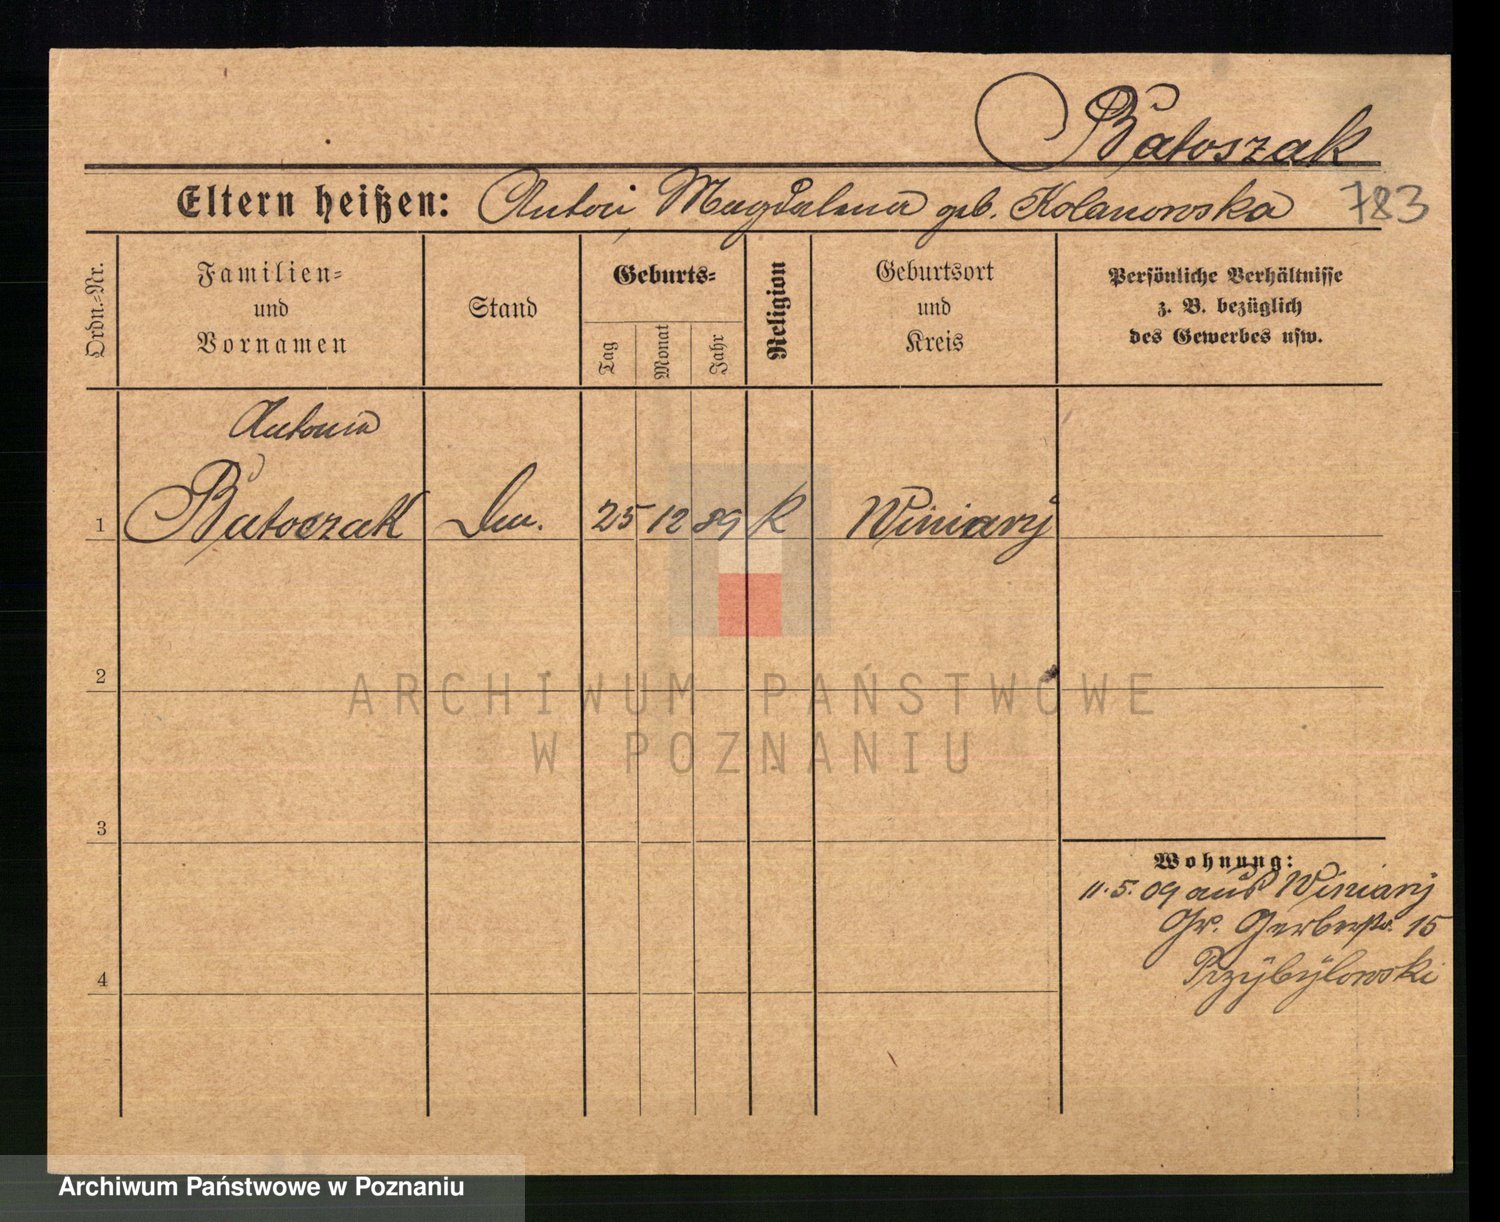 Batoszak
Eltern heißen: Anton, Magdalena geb. Kolanowska 783
Ordn.-Nr.
Familien-
und
Vornamen
Stand
Geburts-
Tag
Monat
Jahr
Religion
Geburtsort
und
Kreis
Persönliche Verhältnisse
z. B. bezüglich
des Gewerbes usw.
Antonia
1 Batoszak 25 12 89 K Winiary
2
ARCHIWUM PAŃSTWOWE
W POZNANIU
3
Wohnung:
11.5.09 aus Winiary
Gr. Gerberstr. 15
Przybylowski
4
Archiwum Państwowe w Poznaniu